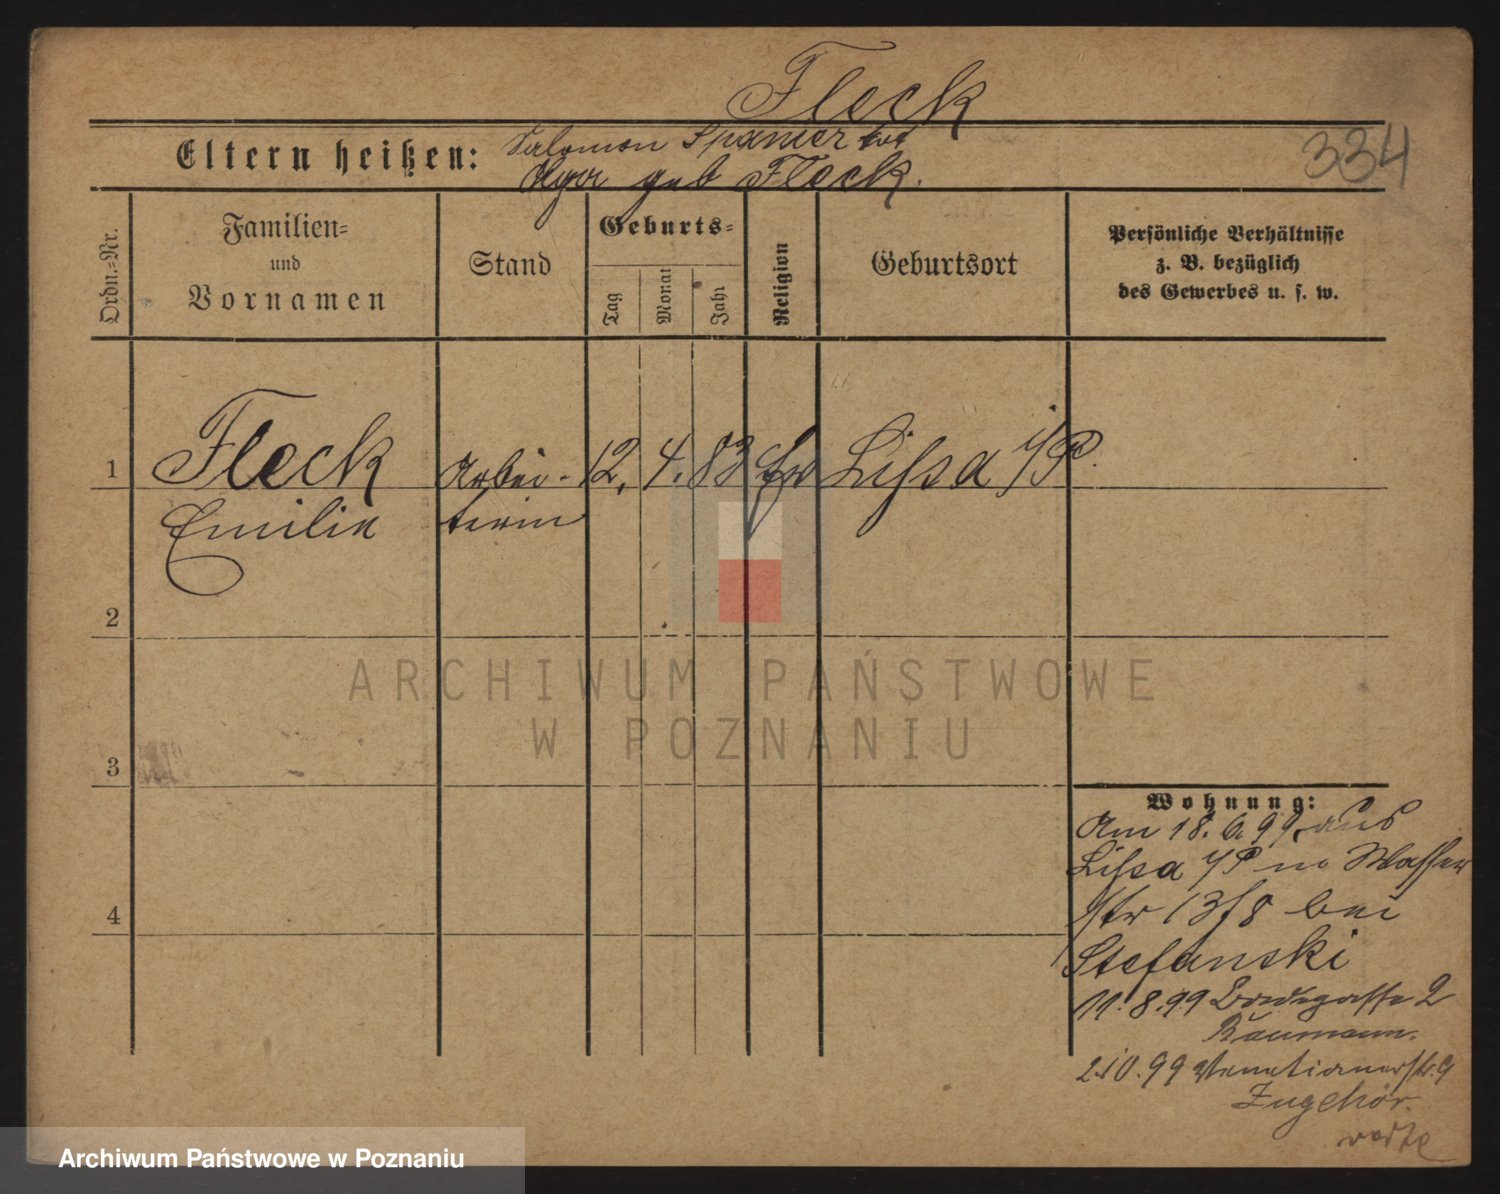 Fleck
334
Eltern heißen: Salomon Spanier tot
geb Fleck.
Ordn.=Nr.
Familien=
und
Vornamen
Stand
Geburts=
Tag
Monat
Jahr
Religion
Geburtsort
Persönliche Verhältnisse
z. B. bezüglich
des Gewerbes u. s. w.
1 Fleck Arbei- 12. 4. 83 Ev Lissa i/P.
Emilie terin
2
3
4
Wohnung:
Am 18. 6. 99. aus
Lissa i/P Wasser
str 13/8 bei
Stefanski
11. 8. 99 2
Baumann.
2.10.99 Venetianerstr. 9
Zugehör
ARCHIWUM PAŃSTWOWE
W POZNANIU
Archiwum Państwowe w Poznaniu